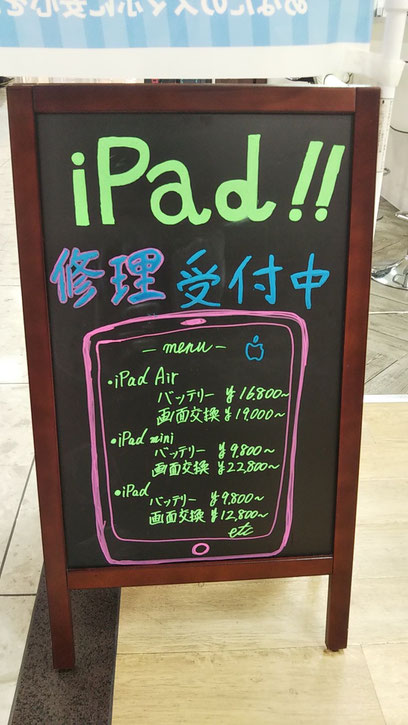 あなたのスマホに安心を
iPad!!
修理受付中
- menu -
•iPad Air
バッテリー ¥16,800~
画面交換 ¥19,000~
•iPad mini
バッテリー ¥9,800~
画面交換 ¥22,800~
•iPad
バッテリー ¥9,800~
画面交換 ¥12,800~
etc